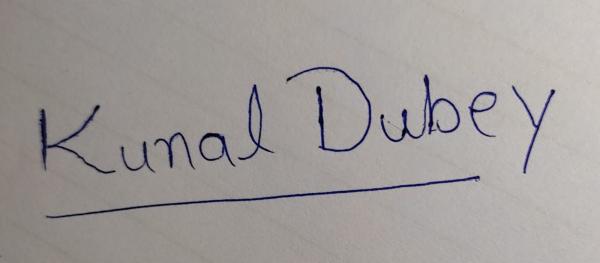 Kunal Dubey